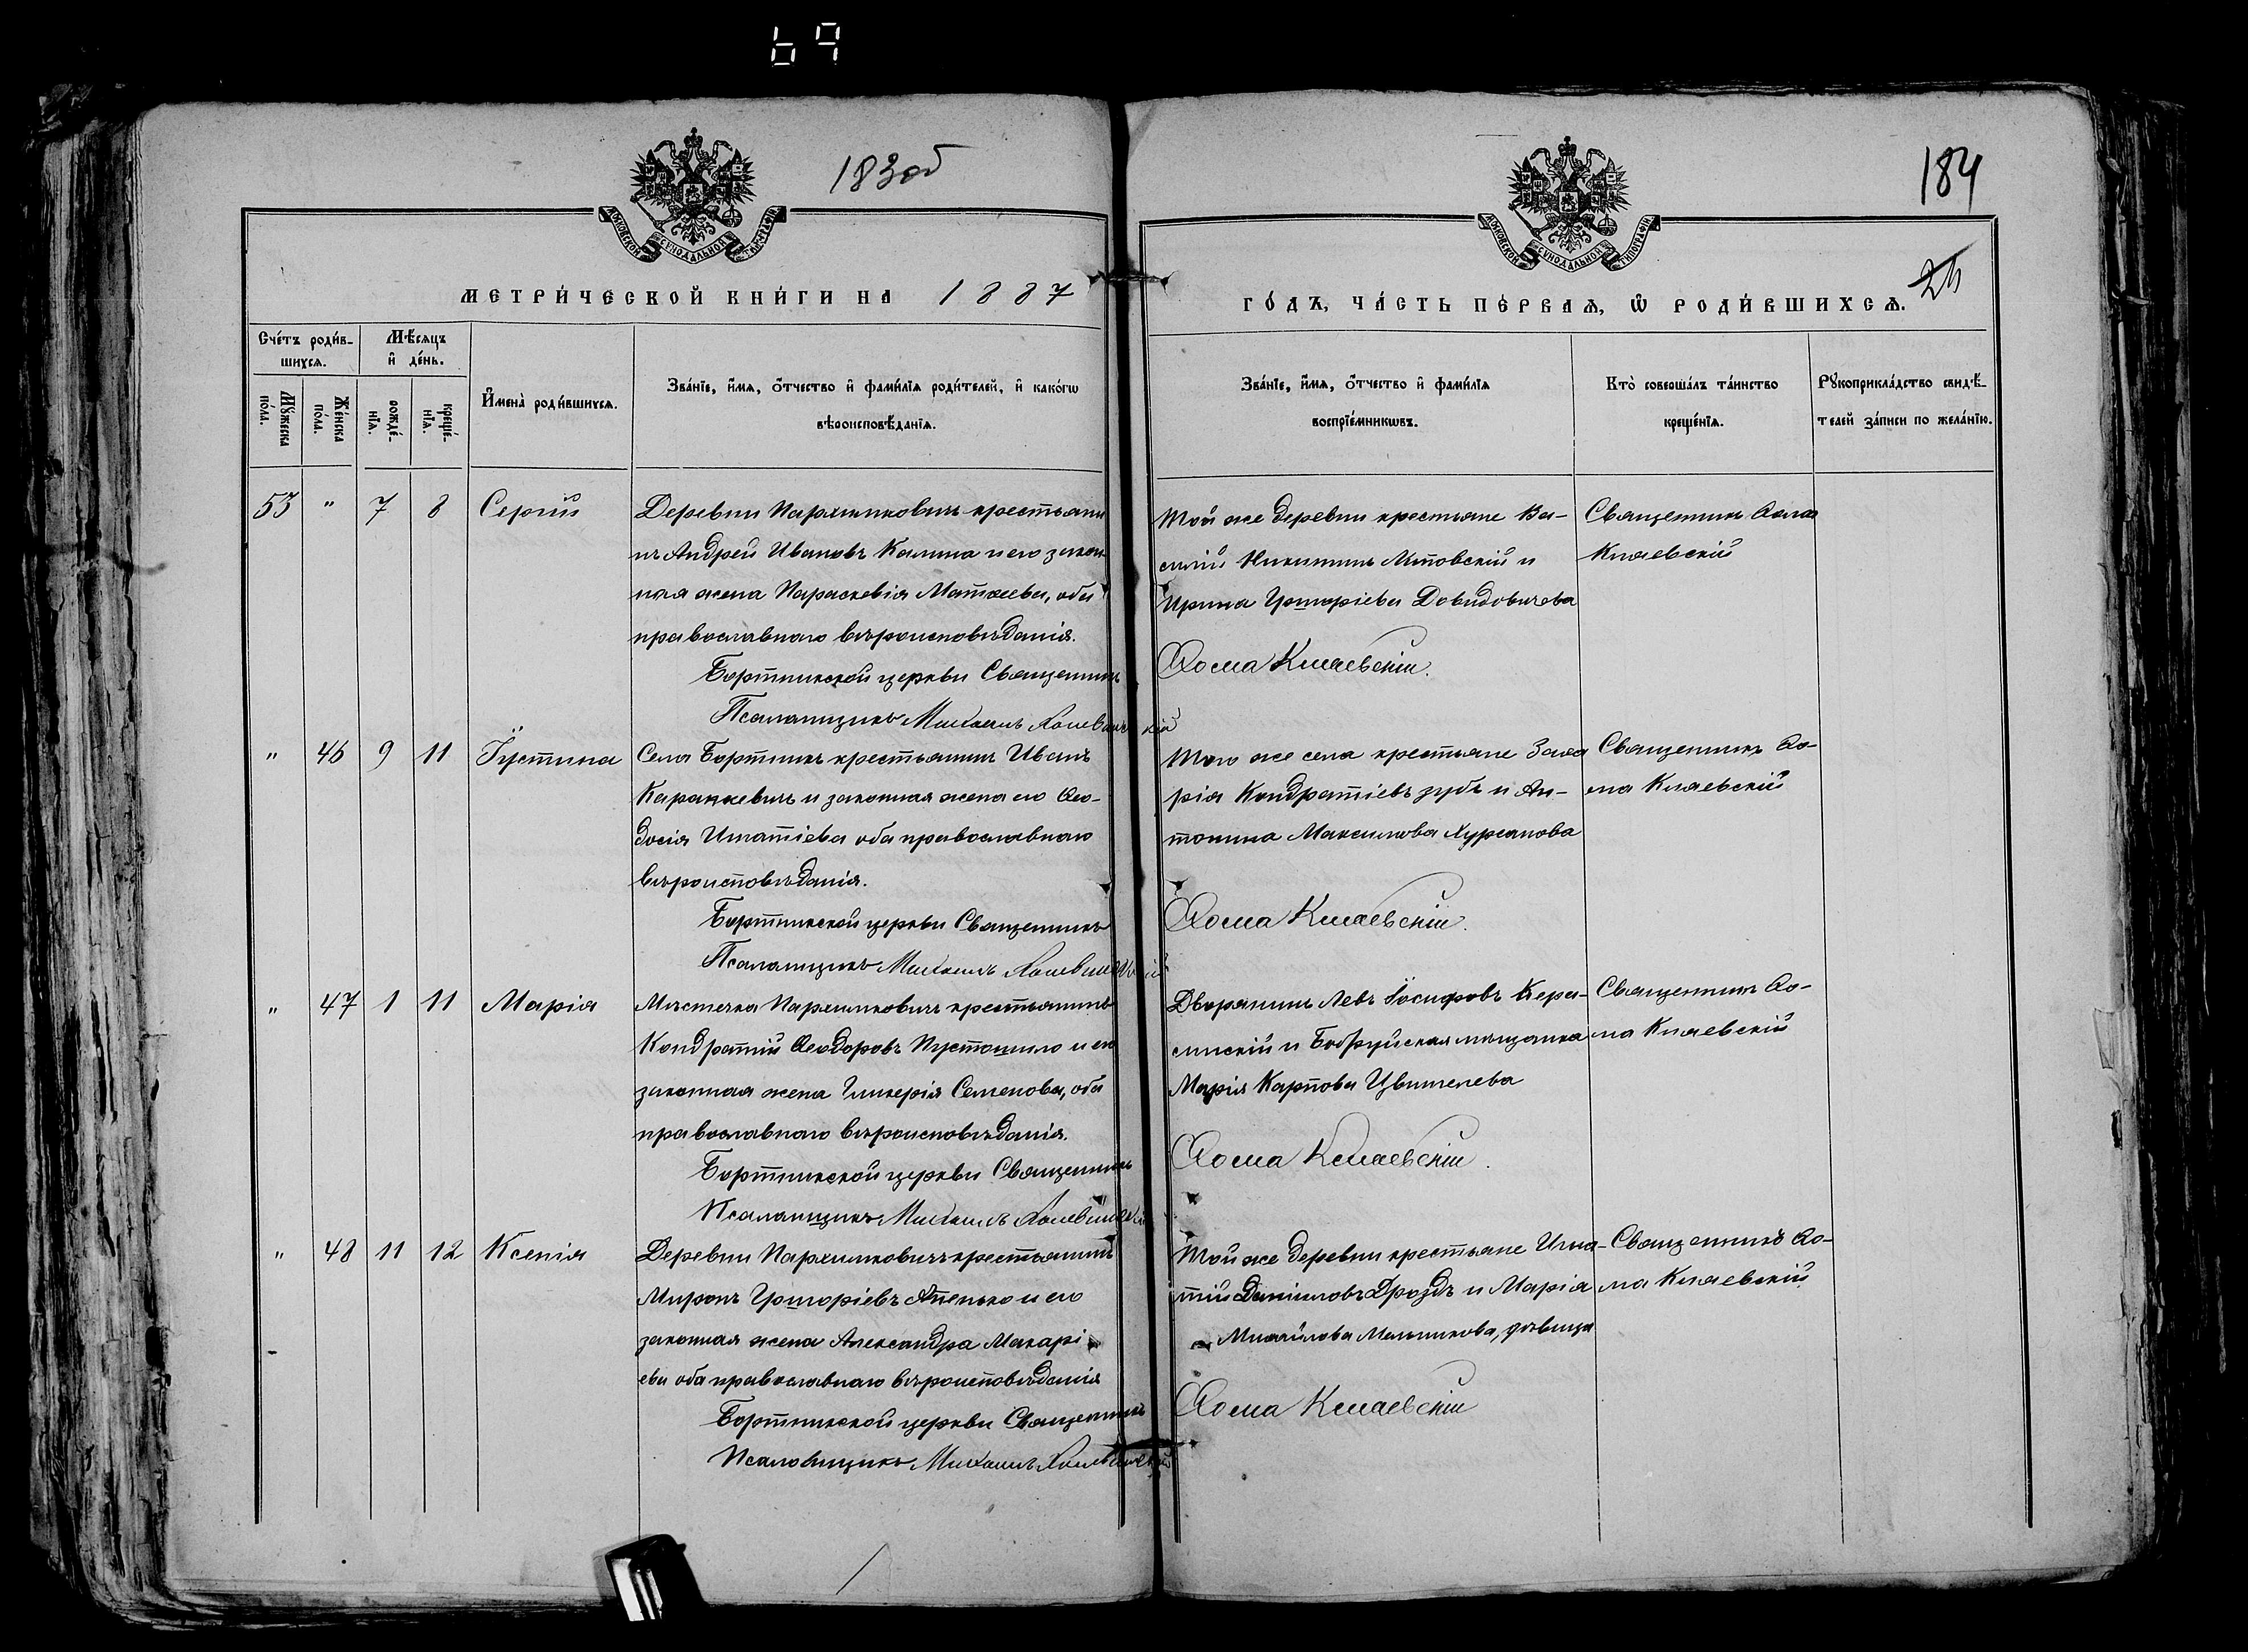 69
183об
184
24
МОСКОВСКОЙ СѴНОДАЛЬНОЙ ТИПОГРАФІИ
МОСКОВСКОЙ СѴНОДАЛЬНОЙ ТИПОГРАФІИ
МЕТРИ́ЧЕСКОЙ КНИ́ГИ НА 1887
ГО́ДЪ, ЧА́СТЬ ПЕ́РВАѦ, Ѽ РОДИ́ВШИХСѦ.
Сче́тъ роди́в-
шихсѧ.
Мѣ́сѧцъ
и҆ де́нь.
Мꙋ́жеска
по́ла.
Же́нска
по́ла.
рожде́-
нїѧ.
креще́-
нїѧ.
И҆мена̀ роди́вшихсѧ.
Зва́нїе, и҆́мѧ, ѻ҆́тчество и҆ фами́лїѧ роди́телей, и҆ како́гѡ
вѣроисповѣ́данїѧ.
Зва́нїе, и҆́мѧ, ѻ҆́тчество и҆ фами́лїѧ
воспрїе́мникѡвъ.
Кто̀ соверша́лъ та́инство
креще́нїѧ.
Рꙋкоприкла́дство свидѣ́-
телей за́писи по жела́нїю.
53 " 7 8 Сергій
Деревни Пархимковичъ крестьяни
нъ Андрей Ивановъ Калина и его закон
ная жена Параскевія Матѳеева, оба
православнаго вѣроисповѣданія.
Бортникской церкви Священникъ
Псаломщикъ Михаилъ
Той же деревни крестьяне Ва-
силій Никитинъ Лѣтовскій и
Ирина Григоріева Довидовичева
Ѳома Кмаевскій.
Священникъ Ѳома
Кмаевскій
" 46 9 11 Іустина
Села Бортникъ крестьянинъ Иванъ
Каранкевичъ и законная жена его Ѳео-
досія Игнатіева оба православнаго
вѣроисповѣданія.
Бортникской церкви Священникъ
Псаломщикъ Михаилъ
Того же села крестьяне Заха
рія Кондратіевъ Зубъ и Ан-
тонина Максимова Хурсанова
Ѳома Кмаевскій.
Священникъ Ѳо-
ма Кмаевскій
" 47 1 11 Марія
Мѣстечка Пархимковичъ крестьянинъ
Кондратій Ѳеодоровъ Пустошило и его
законная жена Гликерія Семенова, оба
православнаго вѣроисповѣданія.
Бортникской церкви Священникъ
Псаломщикъ Михаилъ
Дворянинъ Левъ Іосифовъ Кера-
синскій и Бобруйская мѣщанка
Марія Карпова Цвителева
Ѳома Кмаевскій.
Священникъ Ѳо-
ма Кмаевскій
" 48 11 12 Ксенія
Деревни Пархимковичъ крестьянинъ
Миронъ Григоріевъ Апенько и его
законная жена Александра Макарі
ева оба православнаго вѣроисповѣданія
Бортникской церкви Священникъ
Псаломщикъ Михаилъ
Той же деревни крестьяне Игна-
тій Даніиловъ Дроздъ и Марія
Михайлова Мельникова, дѣвица
Ѳома Кмаевскій
Священникъ Ѳо-
ма Кмаевскій